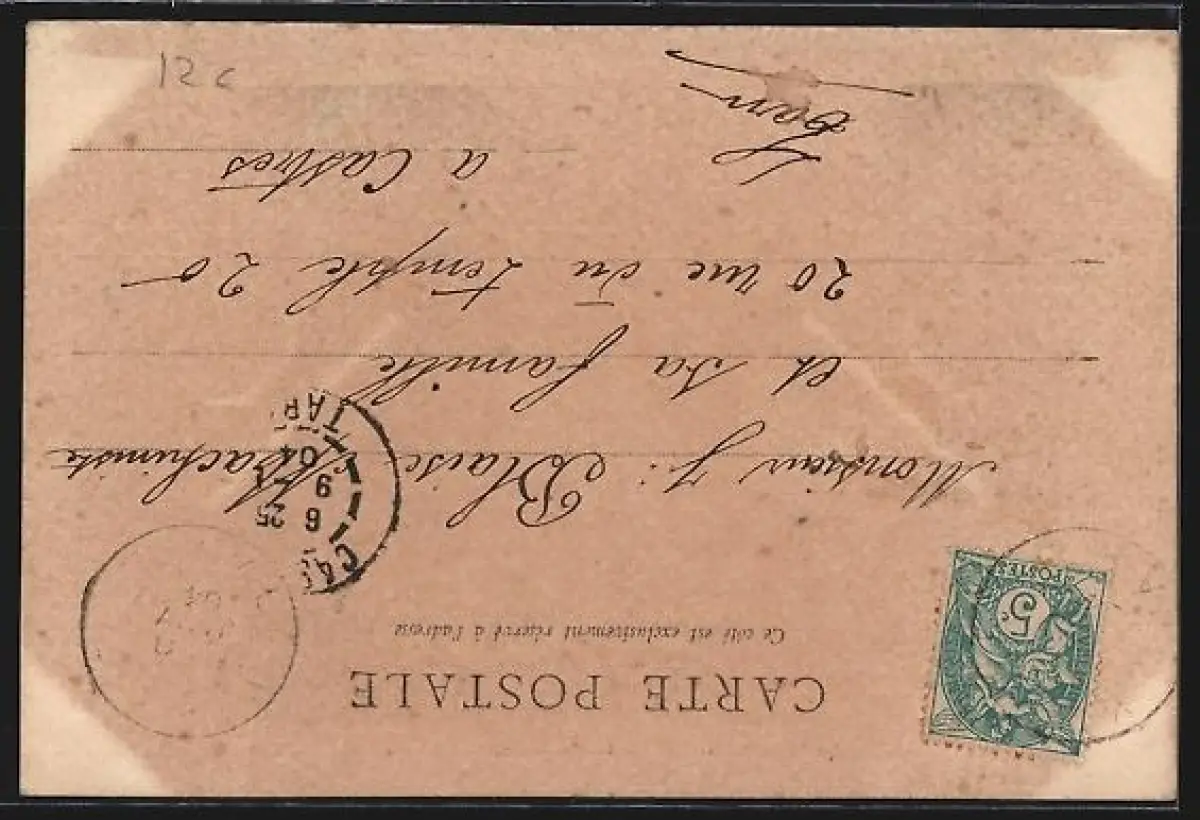 CARTE POSTALE
Ce côté est exclusivement réservé à l'adresse
5c
POSTES
Monsieur J: Blaise Machiniste
et sa famille
20 rue du temple 20
à Castres
Tarn
CAS
6 25
9
04
TAR
12 c